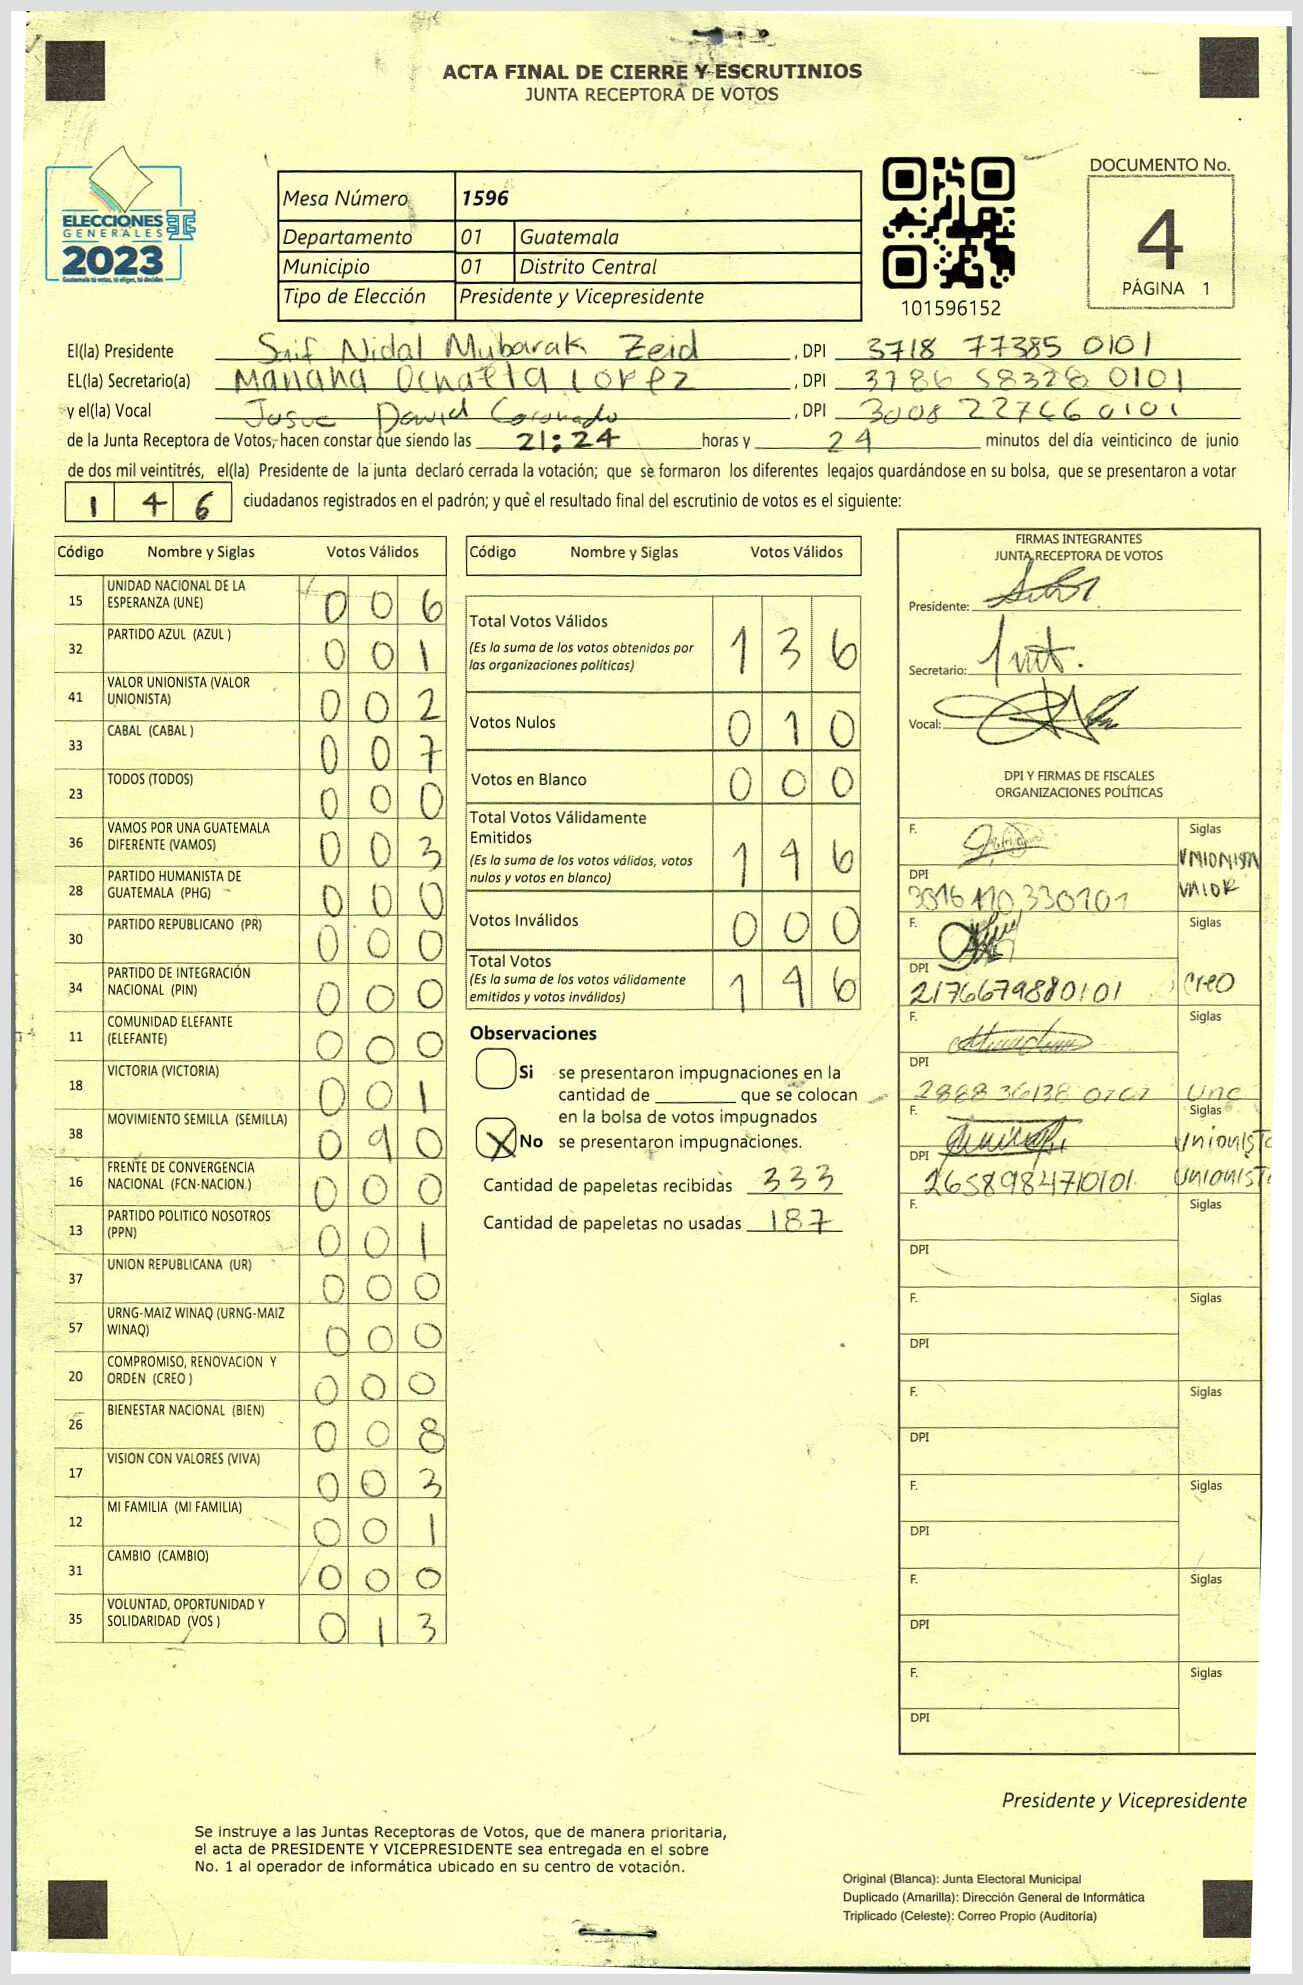 ACTA FINAL DE CIERRE Y ESCRUTINIOS
JUNTA RECEPTORA DE VOTOS
ELECCIONES
GENERALES
2023
Guatemala tú votas, tú eliges, tú decides
Mesa Número 1596
Departamento 01 Guatemala
Municipio 01 Distrito Central
Tipo de Elección Presidente y Vicepresidente
101596152
DOCUMENTO No.
4
PÁGINA 1
El(la) Presidente Saif Nidal Mubarak Zeid , DPI 3718 77385 0101
EL(la) Secretario(a) , DPI 3786 58328 0101
y el(la) Vocal Josue David Coronado , DPI 3008 22766 0101
de la Junta Receptora de Votos, hacen constar que siendo las 21:24 horas y 24 minutos del día veinticinco de junio
de dos mil veintitrés, el(la) Presidente de la junta declaró cerrada la votación; que se formaron los diferentes legajos quardándose en su bolsa, que se presentaron a votar
1 4 6 ciudadanos registrados en el padrón; y qué el resultado final del escrutinio de votos es el siguiente:
Código Nombre y Siglas Votos Válidos
15 UNIDAD NACIONAL DE LA
ESPERANZA (UNE) 0 0 6
32 PARTIDO AZUL (AZUL ) 0 0 1
41 VALOR UNIONISTA (VALOR
UNIONISTA) 0 0 2
33 CABAL (CABAL ) 0 0 7
23 TODOS (TODOS) 0 0 0
36 VAMOS POR UNA GUATEMALA
DIFERENTE (VAMOS) 0 0 3
28 PARTIDO HUMANISTA DE
GUATEMALA (PHG) 0 0 0
30 PARTIDO REPUBLICANO (PR) 0 0 0
34 PARTIDO DE INTEGRACIÓN
NACIONAL (PIN) 0 0 0
11 COMUNIDAD ELEFANTE
(ELEFANTE) 0 0 0
18 VICTORIA (VICTORIA) 0 0 1
38 MOVIMIENTO SEMILLA (SEMILLA) 0 9 0
16 FRENTE DE CONVERGENCIA
NACIONAL (FCN-NACION.) 0 0 0
13 PARTIDO POLITICO NOSOTROS
(PPN) 0 0 1
37 UNION REPUBLICANA (UR) 0 0 0
57 URNG-MAIZ WINAQ (URNG-MAIZ
WINAQ) 0 0 0
20 COMPROMISO, RENOVACION Y
ORDEN (CREO ) 0 0 0
26 BIENESTAR NACIONAL (BIEN) 0 0 8
17 VISION CON VALORES (VIVA) 0 0 3
12 MI FAMILIA (MI FAMILIA) 0 0 1
31 CAMBIO (CAMBIO) 0 0 0
35 VOLUNTAD, OPORTUNIDAD Y
SOLIDARIDAD (VOS ) 0 1 3
Código Nombre y Siglas Votos Válidos
Total Votos Válidos 1 3 6
(Es la suma de los votos obtenidos por
las organizaciones políticas)
Votos Nulos 0 1 0
Votos en Blanco 0 0 0
Total Votos Válidamente
Emitidos 1 4 6
(Es la suma de los votos válidos, votos
nulos y votos en blanco)
Votos Inválidos 0 0 0
Total Votos 1 4 6
(Es la suma de los votos válidamente
emitidos y votos inválidos)
Observaciones
Si se presentaron impugnaciones en la
cantidad de ________ que se colocan
en la bolsa de votos impugnados
X No se presentaron impugnaciones.
Cantidad de papeletas recibidas 333
Cantidad de papeletas no usadas 187
FIRMAS INTEGRANTES
JUNTA RECEPTORA DE VOTOS
Presidente:
Secretario:
Vocal:
DPI Y FIRMAS DE FISCALES
ORGANIZACIONES POLÍTICAS
F. Siglas
UNIONISTA
DPI VALOR
F. Siglas
DPI
2176679880101 CREO
F. Siglas
DPI
2888 36138 0707 Une
F. Siglas
Unionista
DPI
2658984710101 Unionista
F. Siglas
DPI
F. Siglas
DPI
F. Siglas
DPI
F. Siglas
DPI
F. Siglas
DPI
F. Siglas
DPI
Presidente y Vicepresidente
Se instruye a las Juntas Receptoras de Votos, que de manera prioritaria,
el acta de PRESIDENTE Y VICEPRESIDENTE sea entregada en el sobre
No. 1 al operador de informática ubicado en su centro de votación.
Original (Blanca): Junta Electoral Municipal
Duplicado (Amarilla): Dirección General de Informática
Triplicado (Celeste): Correo Propio (Auditoría)